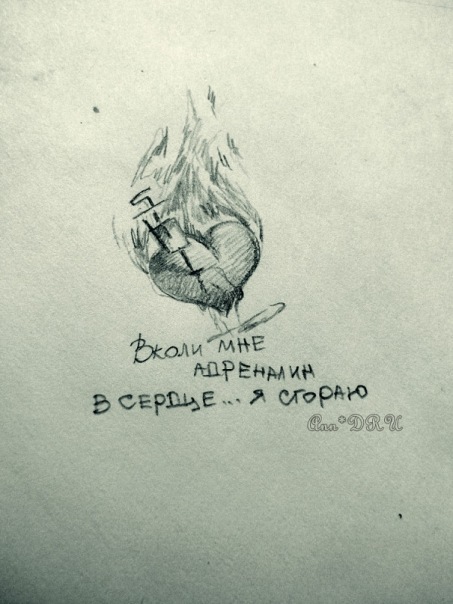 Вколи мне
адреналин
в сердце... я сгораю
Ann*DRU